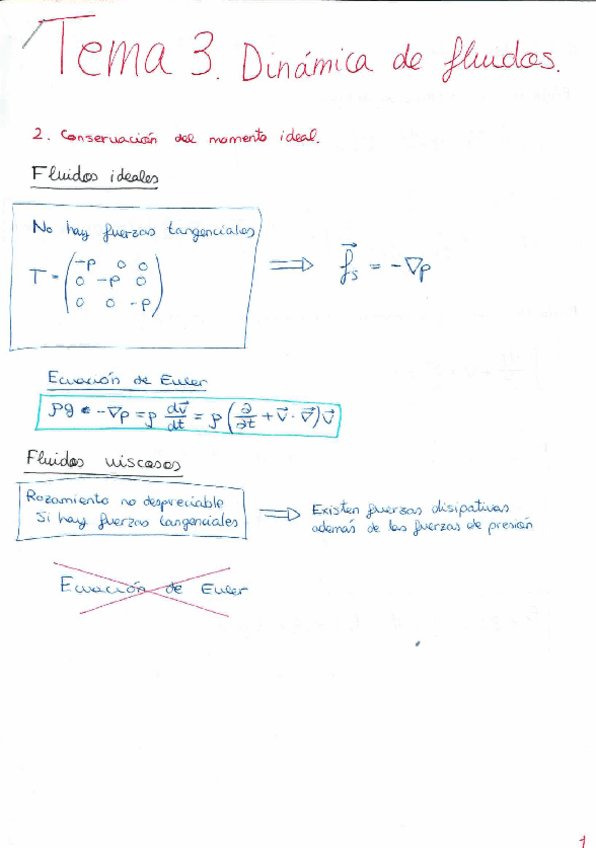 Tema 3. Dinámica de fluidos.
2. Conservación del momento ideal.
Fluidos ideales
No hay fuerzas tangenciales
T = (-p 0 0
0 -p 0
0 0 -p)
⟹ f⃗s = -∇p
Ecuación de Euler
ρg -∇p = ρ dv⃗/dt = ρ (∂/∂t + v⃗ · ∇⃗) v⃗
Fluidos viscosos
Rozamiento no despreciable
Si hay fuerzas tangenciales
⟹ Existen fuerzas disipativas
además de las fuerzas de presión
Ecuación de Euler
1